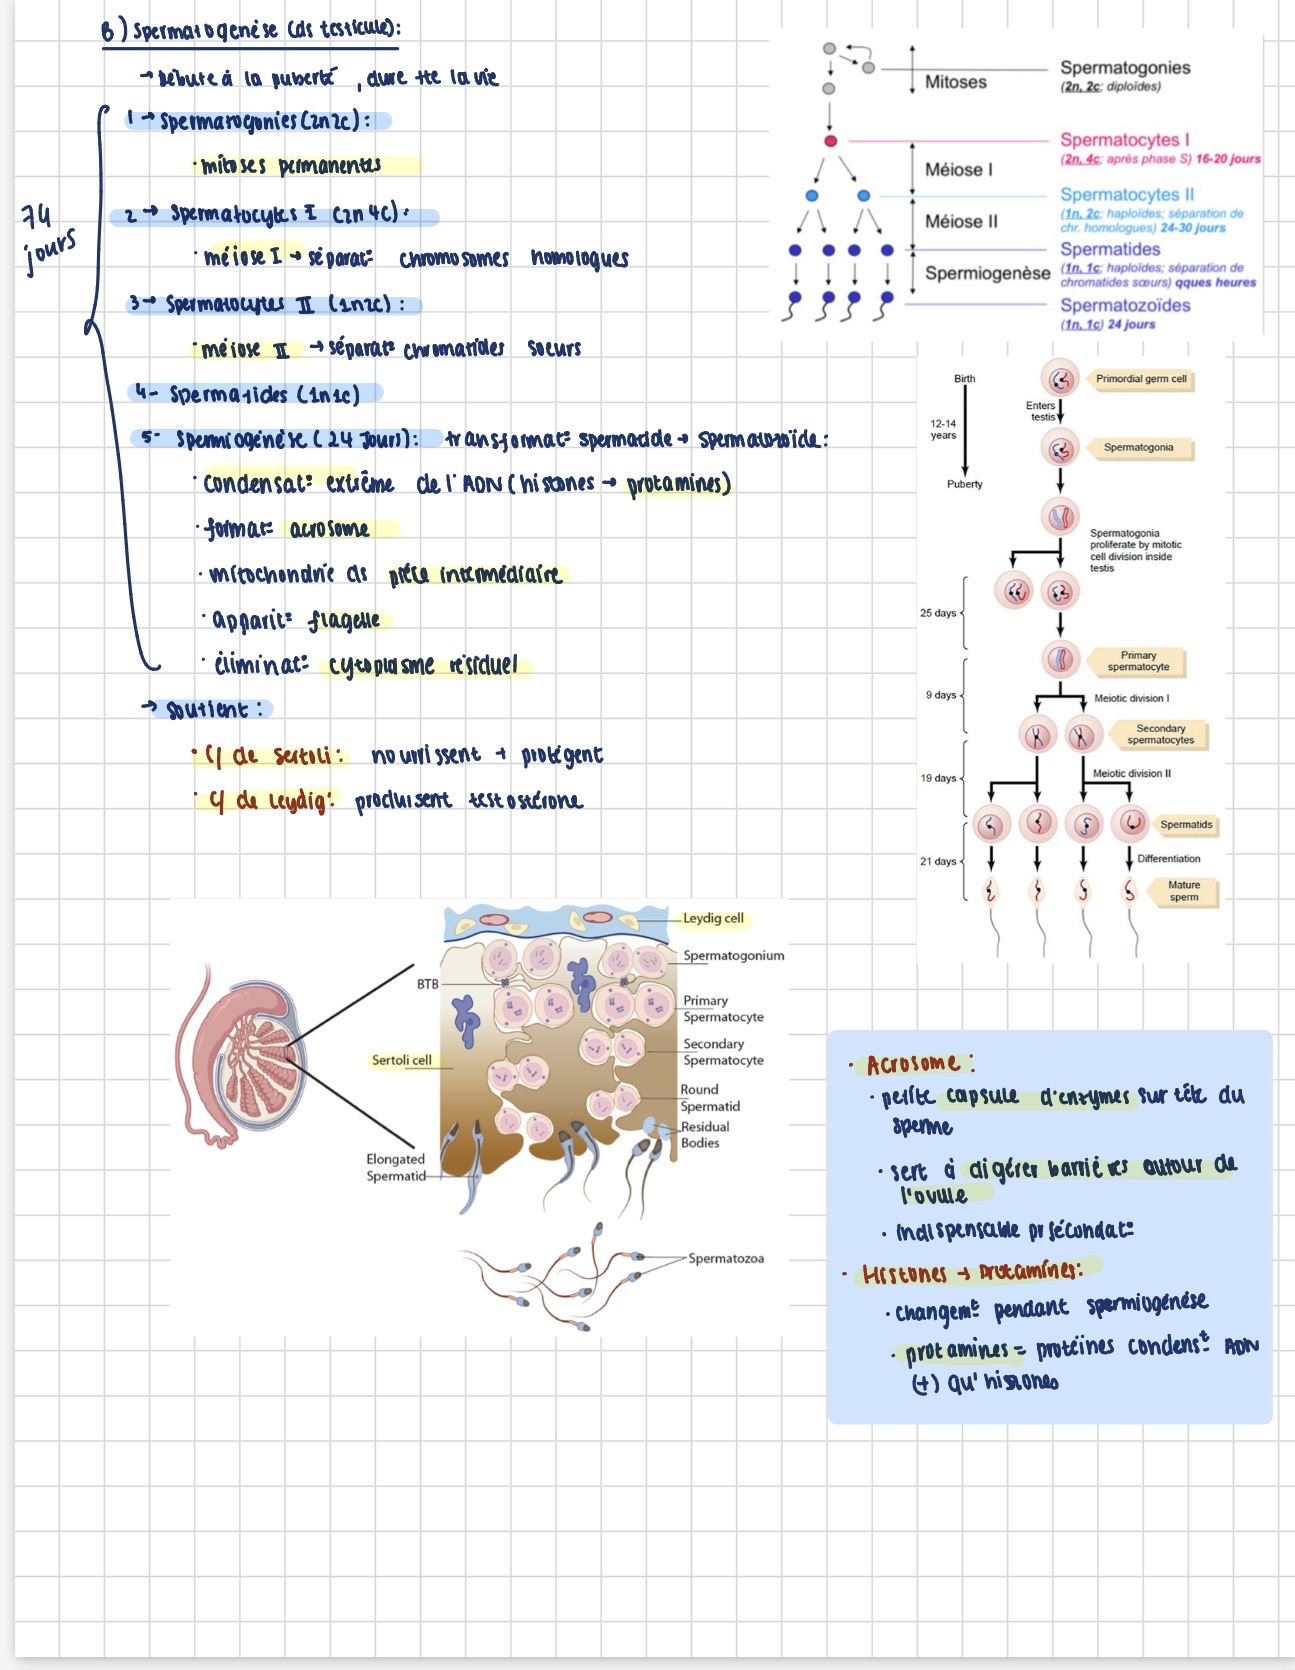 B) Spermatogenèse (ds testicule):
→ Débute à la puberté, dure tte la vie
74 jours
1 → Spermatogonies (2n2c):
· mitoses permanentes
2 → Spermatocytes I (2n4c):
· méiose I → séparat° chromosomes homologues
3 → Spermatocytes II (1n2c):
· méiose II → séparat° chromatides soeurs
4- Spermatides (1n1c)
5- Spermiogénèse (24 jours): transformat° spermatide → spermatozoïde:
· condensat° extrême de l'ADN (histones → protamines)
· format° acrosome
· mitochondrie ds pièce intermédiaire
· apparit° flagelle
· éliminat° cytoplasme résiduel
→ soutient:
· C/ de Sertoli: nourrissent + protègent
· C/ de Leydig: produisent testostérone
Mitoses
Méiose I
Méiose II
Spermiogenèse
Spermatogonies
(2n, 2c; diploïdes)
Spermatocytes I
(2n, 4c; après phase S) 16-20 jours
Spermatocytes II
(1n, 2c; haploïdes; séparation de
chr. homologues) 24-30 jours
Spermatides
(1n, 1c; haploïdes; séparation de
chromatides sœurs) qques heures
Spermatozoïdes
(1n, 1c) 24 jours
Birth
12-14
years
Puberty
Primordial germ cell
Enters
testis
Spermatogonia
Spermatogonia
proliferate by mitotic
cell division inside
testis
25 days
Primary
spermatocyte
9 days
Meiotic division I
Secondary
spermatocytes
19 days
Meiotic division II
Spermatids
21 days
Differentiation
Mature
sperm
Leydig cell
Spermatogonium
BTB
Primary
Spermatocyte
Secondary
Spermatocyte
Sertoli cell
Round
Spermatid
Residual
Bodies
Elongated
Spermatid
Spermatozoa
· Acrosome:
· petite capsule d'enzymes sur tête du
sperme
· sert à digérer barrières autour de
l'ovule
· indispensable pr fécondat°
· Histones → Protamines:
· changemt pendant spermiogénèse
· protamines = protéines condenst ADN
(+) qu'histones